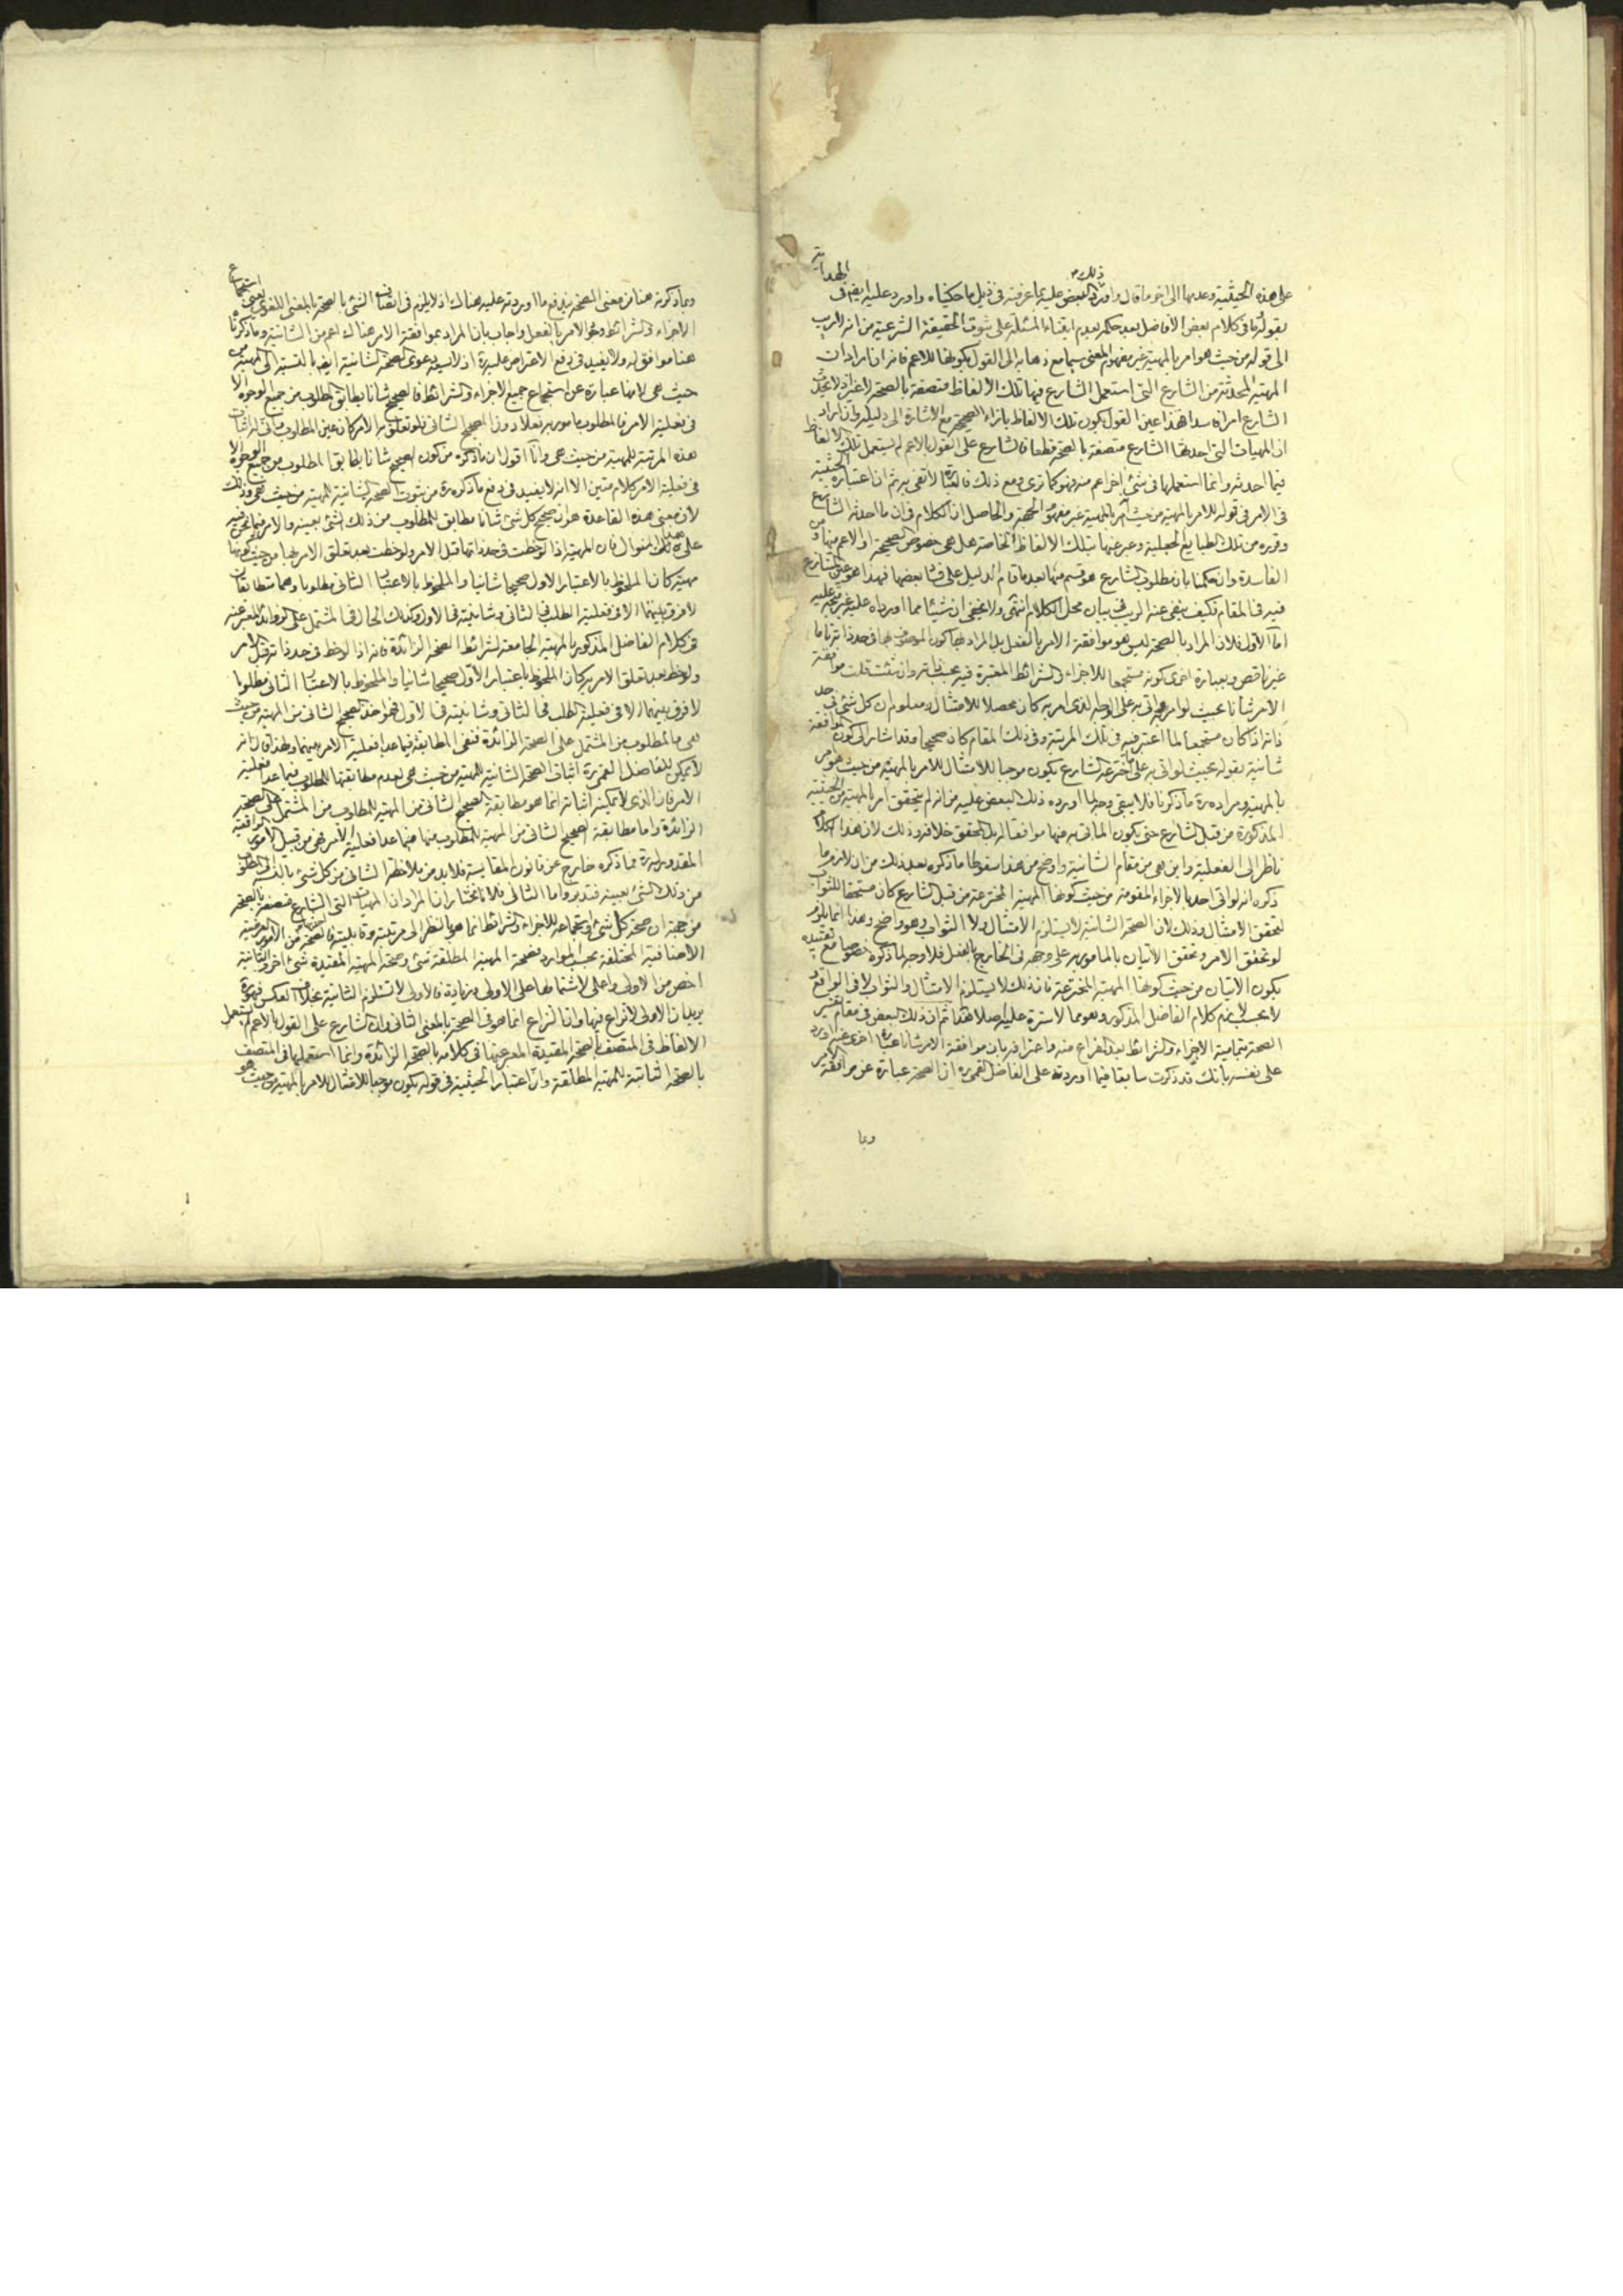 على هذه الحيثية وعدمها الى اخر ما قال واورد ذلك البعض عليه بما عرفته في ذيل ما حكيناه واورد عليه ايضا في الهداية
بقوله ما في كلام بعض الافاضل بعد حكمه بعدم ابتناء المسئلة على ثبوت الحقيقة الشرعية من انه لا ريب
الى قوله من حيث هو امر بالمهية غير مفهوم المعنى سيما مع ذهابه الى القول بكونها للاعم فانه ان اراد ان
المهية المحدثة من الشارع التي استعمل الشارع فيها تلك الالفاظ متصفة بالصحة لا غير اذ لا يحدث
الشارع امرا فاسدا فهذا عين القول بكون تلك الالفاظ بازاء الصحيحة مع الاشارة الى دليله وان اراد
ان المهيات التي احدثها الشارع متصفة بالصحة قطعا فالشارع على القول بالاعم لم يستعمل تلك الالفاظ
فيما احدثه وانما استعملها في شئ اخر اعم منه فهو كما ترى ومع ذلك فالعبارة لا تفى به ثم ان اعتباره الحيثية
في الامر في قوله للامر بالمهية من حيث امر بالمهية غير مفهوم الجهة والحاصل ان الكلام في ان ما احدثه الشارع
وقرره من تلك الطبايع الجعلية وعبر عنها بتلك الالفاظ الخاصة هل هي خصوص الصحيحة او الاعم منها ومن
الفاسدة وان حكمنا بان مطلوب الشارع هو قسم منها بعد ما قام الدليل على فساد بعضها فهذا هو عين المتنازع
فيه في المقام فكيف ينفى عنه الريب في بيان محل الكلام انتهى ولا يخفى ان شيئا مما اورداه عليه غير متجه عليه
اما الاول فلان المراد بالصحة ليس هو موافقة الامر بالفعل بل المراد بها كون الموصوف بها في حد ذاته تاما
غير ناقص وبعبارة اخرى كونه مستجمعا للاجزاء والشرائط المعتبرة فيه بحسب ذاته وان شئت قلت موافقة
الامر شأنا بحيث لو امر به واتى به على الوجه الذى امر به كان محصلا للامتثال ومعلوم ان كل شئ في حد
ذاته اذا كان مستجمعا لما اعتبر فيه في تلك المرتبة وفي ذلك المقام كان صحيحا وقد اشار الى كون الموافقة
شأنية بقوله بحيث لو اتى به على ما اخترعه الشارع يكون موجبا للامتثال للامر بالمهية من حيث هو امر
بالمهية ومراده ره ما ذكرنا فلا يبقى وجه لما اورده ذلك البعض عليه من انه لم يتحقق امر بالمهية من الحيثية
المذكورة من قبل الشارع حتى يكون الماتى به منها موافقا له بل المحقق خلافه وذلك لان هذا الكلام
ناظر الى الفعلية واين هي من مقام الشأنية واوضح من هذا سقوطا ما ذكره بعد ذلك من ان لازم ما
ذكره انه لو اتى احد بالاجزاء المقومة من حيث كونها المهية المخترعة من قبل الشارع كان مستحقا للثواب
لتحقق الامتثال وذلك لان الصحة الشأنية لا يستلزم الامتثال ولا الثواب وهو واضح وهذا انما يلزم
لو تحقق الامر وتحقق الاتيان بالمامور به على وجهه في الخارج بالفعل فلا وجه لما ذكره خصوصا مع تقييده
بكون الاتيان من حيث كونها المهية المخترعة فان ذلك لا يستلزم الامتثال والثواب لا في الواقع ولا
لا بحسب لازم كلام الفاضل المذكور وهو مما لا سترة عليه اصلا هذا ثم ان ذلك البعض في مقام تفسير
الصحة بتمامية الاجزاء والشرائط بعد الفراغ منه واعترافه بان موافقة الامر شأنا عبارة اخرى عنه اورد
على نفسه بانك قد ذكرت سابقا فيما اوردته على الفاضل القمي ره ان الصحة عبارة عن موافقة الامر
وبما
وبما ذكرته هنا من معنى الصحة يندفع ما اوردته عليه هناك اذ لا يلزم في اتصاف الشئ بالصحة بالمعنى اللغوى يعني استجماع
الاجزاء والشرائط وجود الامر بالفعل واجاب بان المراد بموافقة الامر هناك اعم من الشأنية وما ذكرنا
هنا موافق له ولا يفيد في دفع الاعتراض عليه ره اذ لا يسعه دعوى الصحة الشأنية ايضا بالنسبة الى المهية من
حيث هي لانها عبارة عن استجماع جميع الاجزاء والشرائط فالصحيح شأنا يطابق المطلوب من جميع الوجوه الا
في فعلية الامر فالمطلوب مامور به فعلا دون الصحيح الشأنى فلو تعلق به الامر كان عين المطلوب فانى له اثبات
هذه المرتبة للمهية من حيث هي وانا اقول ان ما ذكره من كون الصحيح شأنا مطابقا للمطلوب من جميع الوجوه الا
في فعلية الامر كلام متين الا انه لا يفيد في دفع ما ذكره ره من ثبوت الصحة الشأنية للمهية من حيث هي وذلك
لان معنى هذه القاعدة هو ان صحيح كل شئ شأنا مطابق للمطلوب من ذلك الشئ بعينه والامر فيما نحن فيه
على هذا المنوال فان المهية اذا لوحظت في حد ذاتها قبل الامر ولوحظت بعد تعلق الامر بها من حيث كونها
مهية كان الملحوظ بالاعتبار الاول صحيحا شأنيا والملحوظ بالاعتبار الثانى مطلوبا وهما متطابقان
لا فرق بينهما الا في فعلية الطلب في الثانى وشأنيته في الاول وكذلك الحال في المشتمل على الزوائد المعبر عنه
في كلام الفاضل المذكور بالمهية الجامعة لشرائط الصحة الزائدة فانه اذا لوحظ في حد ذاته قبل الامر
ولوحظ بعد تعلق الامر به كان الملحوظ باعتبار الاول صحيحا شأنيا والملحوظ بالاعتبار الثانى مطلوبا
لا فرق بينهما الا في فعلية الطلب في الثانى وشأنيته في الاول فهو اخذ الصحيح الشأنى من المهية من حيث
هي والمطلوب من المشتمل على الصحة الزائدة فنفى المطابقة فيما عدا فعلية الامر بينهما ولهذا قال انه
لا يمكن للفاضل القمي ره اثبات الصحة الشأنية للمهية من حيث هي لعدم مطابقتها للمطلوب فيما عدا فعلية
الامر فان الذى لا يمكنه اثباته انما هو مطابقة الصحيح الشأنى من المهية للمطلوب من المشتمل على الصحة
الزائدة واما مطابقة الصحيح الشأنى من المهية للمطلوب منها فيما عدا فعلية الامر فهي من قبيل الامور الواقعية
المقدورة له ره فما ذكره خارج عن قانون المقايسة فلا بد من ملاحظة الشأنى من كل شئ بالنسبة الى المطلوب
من ذلك الشئ بعينه فتدبر واما الثانى فلانا نختار ان المراد ان المهيات التى الشارع متصفة بالصحة
من جهة ان صحة كل شئ واستجماعه للاجزاء والشرائط انما هو بالنظر الى مرتبته وقابليته فالصحة من الامور العرضية
الاضافية المختلفة بحسب الموارد فصحة المهية المطلقة شئ وصحة المهية المقيدة شئ اخر والثانية
اخص من الاولى واعلى لاشتمالها على الاولى وزيادة فالاولى لا تستلزم الثانية بخلاف العكس فهو ره
يريد ان الاولى لا نزاع فيها وانا النزاع انما هو في الصحة بالمعنى الثانى وان الشارع على القول بالاعم لم يستعمل
الالفاظ في المتصف بالصحة المقيدة المعبر عنها في كلامه بالصحة الزائدة وانما استعملها في المتصف
بالصحة الثابتة للمهية المطلقة وان اعتبار الحيثية في قوله يكون موجبا للامتثال للامر بالمهية من حيث هو